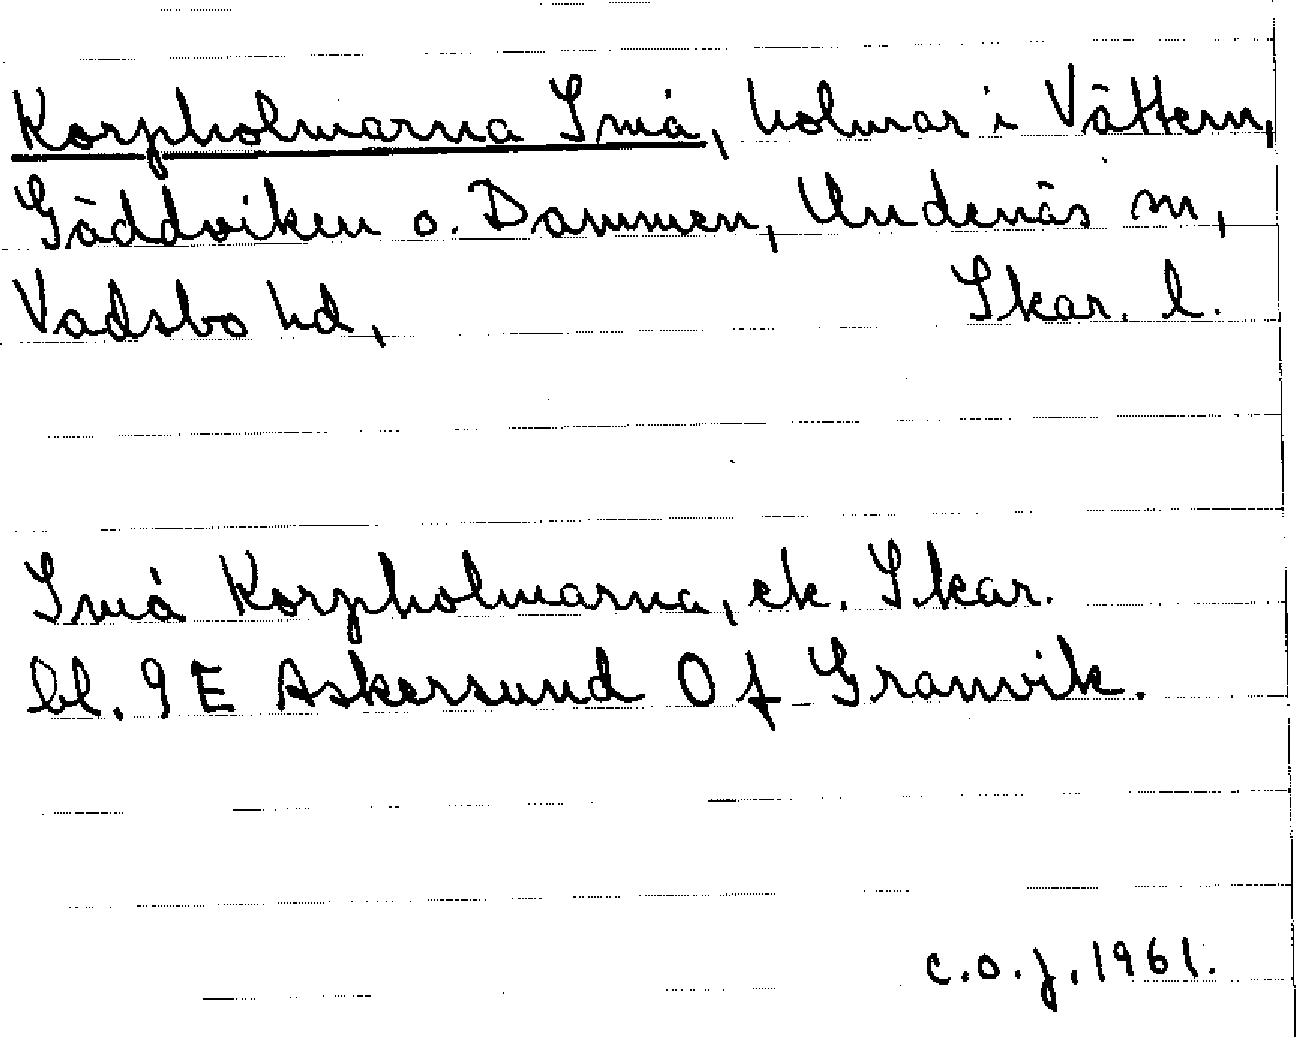 Korpholmarna Små, holmar i Vättern,
Gäddviken o. Dammen, Undenäs sn,
Vadsbo hd, Skar. l.
Små Korpholmarna, ek. Skar.
bl. 9E Askersund 0f Granvik.
c.o.j. 1961.